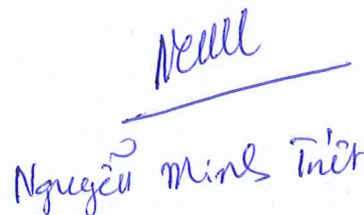 Nguyễn Minh Triết